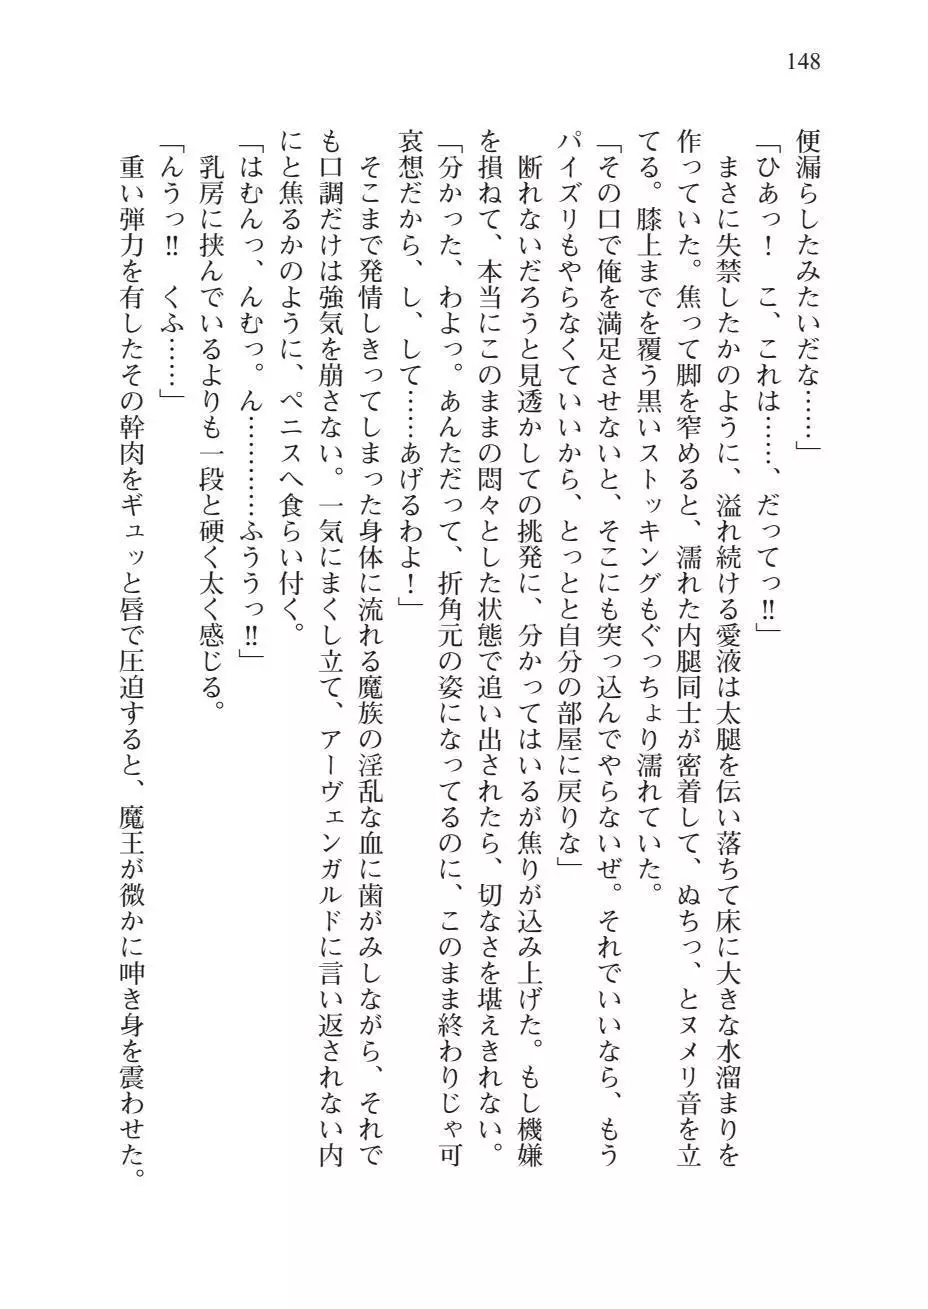 148
便漏らしたみたいだな……」
「ひあっ！　こ、これは……、だってっ‼」
　まさに失禁したかのように、溢れ続ける愛液は太腿を伝い落ちて床に大きな水溜まりを
作っていた。焦って脚を窄めると、濡れた内腿同士が密着して、ぬちっ、とヌメリ音を立
てる。膝上までを覆う黒いストッキングもぐっちょり濡れていた。
「その口で俺を満足させないと、そこにも突っ込んでやらないぜ。それでいいなら、もう
パイズリもやらなくていいから、とっとと自分の部屋に戻りな」
　断れないだろうと見透かしての挑発に、分かってはいるが焦りが込み上げた。もし機嫌
を損ねて、本当にこのままの悶々とした状態で追い出されたら、切なさを堪えきれない。
「分かった、わよっ。あんただって、折角元の姿になってるのに、このまま終わりじゃ可
哀想だから、し、して……あげるわよ！」
　そこまで発情しきってしまった身体に流れる魔族の淫乱な血に歯がみしながら、それで
も口調だけは強気を崩さない。一気にまくし立て、アーヴェンガルドに言い返されない内
にと焦るかのように、ペニスへ食らい付く。
「はむんっ、んむっ。ん…………ふううっ‼」
　乳房に挟んでいるよりも一段と硬く太く感じる。
「んうっ‼　くふ……」
　重い弾力を有したその幹肉をギュッと唇で圧迫すると、魔王が微かに呻き身を震わせた。